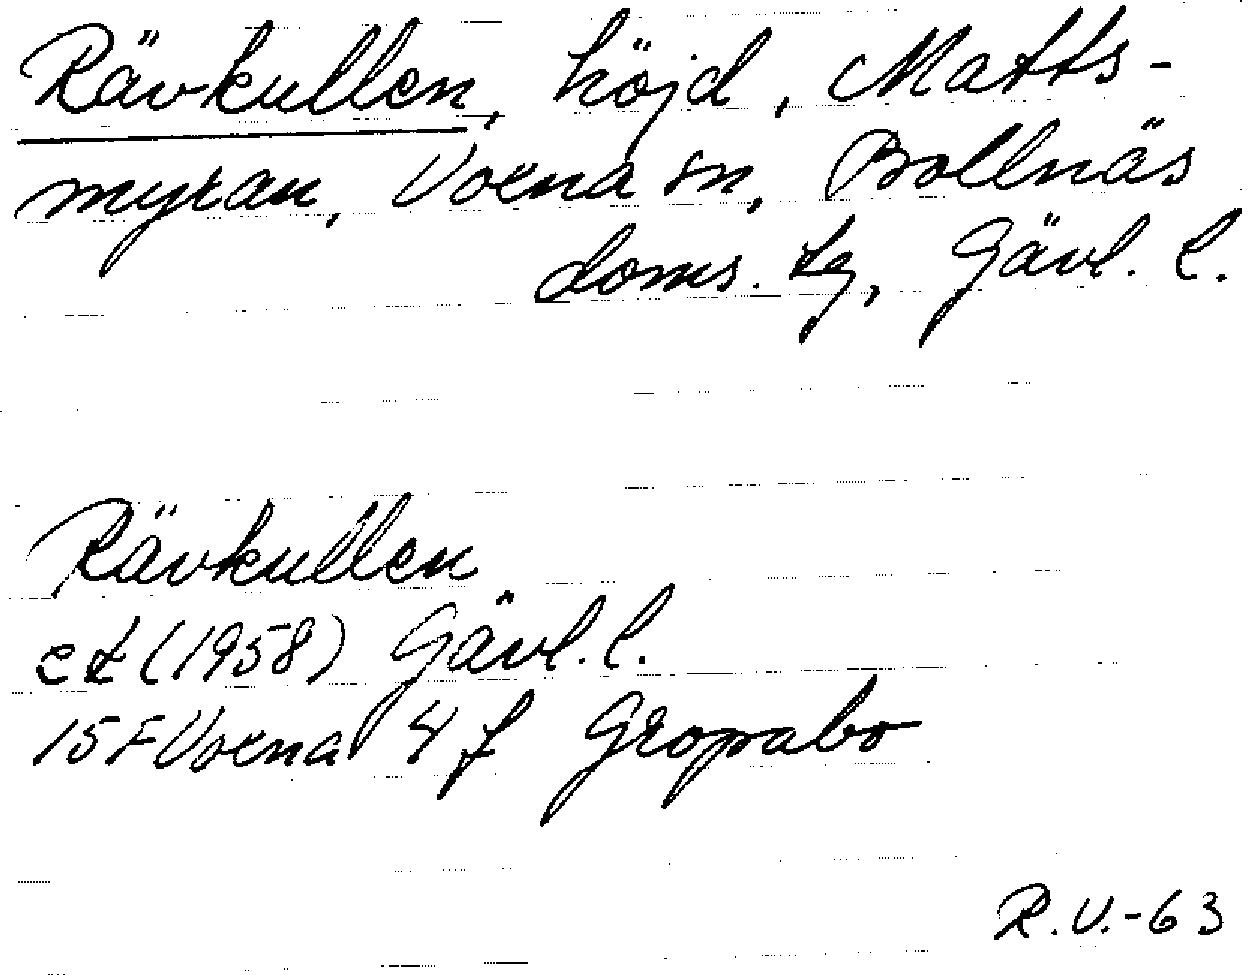 Rävkullen, höjd, Matts-
myran, Voxna sn, Bollnäs
doms. tg, Gävl. l.
Rävkullen
ek (1958) Gävl. l.
15F Voxna 4 f Gropabo
R.V.-63